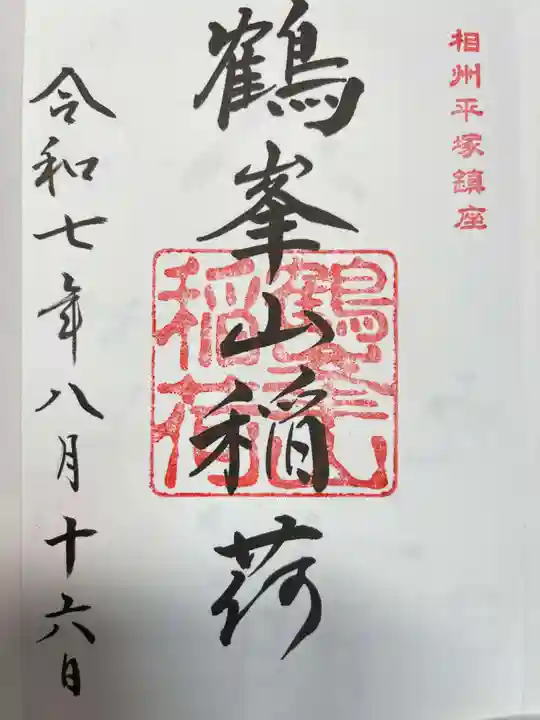 相州平塚鎮座
鶴峯山稲荷
令和七年八月十六日